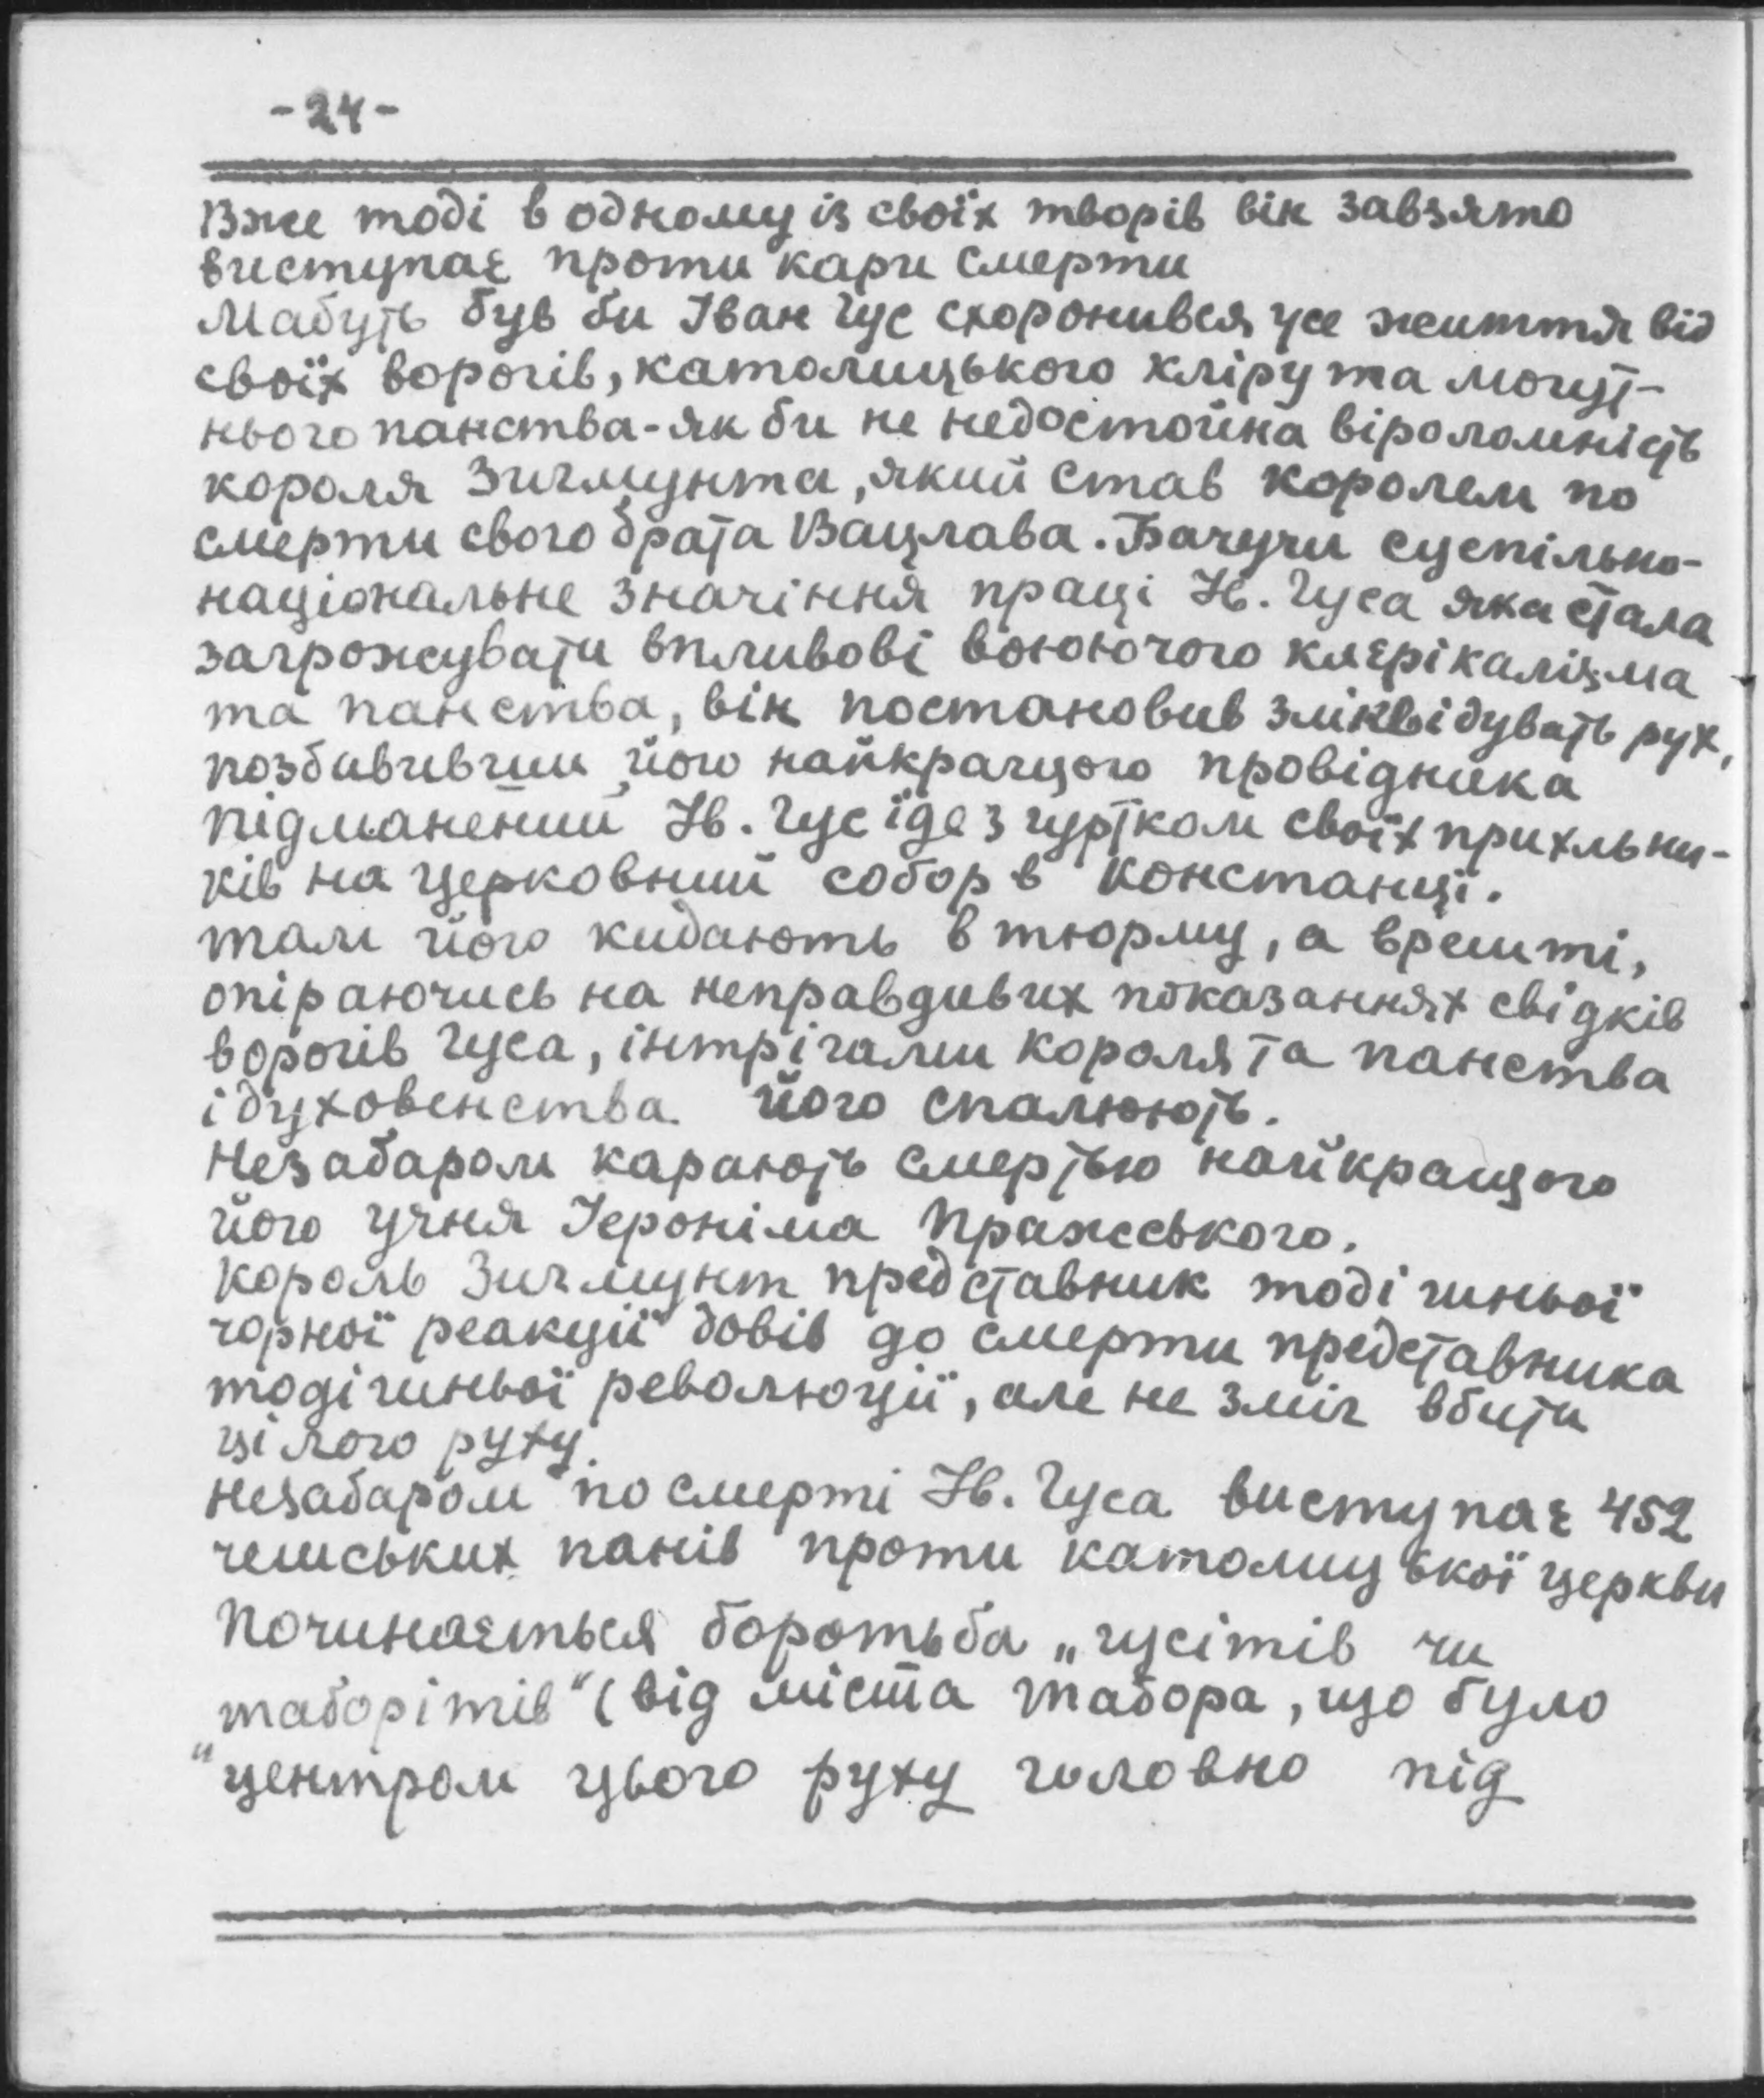 -24-
Вже тоді в одному із своїх творів він завзято
виступає проти кари смерти
Мабуть був би Іван Гус схоронився усе життя від
своїх ворогів, католицького кліру та могут-
нього панства-як би не недостойна віроломність
короля Зигмунта, який став королем по
смерти свого брата Вацлава. Бачучи суспільно-
національне значіння праці Ів. Гуса яка стала
загрожувати впливові воюючого клєрікалізма
та панства, він постановив зліквідувать рух,
позбавивши його найкращого провідника
підманений Ів. Гус їде з гуртком своїх прихльни-
ків на церковний собор в Констанці.
там його кидають в тюрму, а врешті,
опіраючись на неправдивих показаннях свідків
ворогів Гуса, інтрігами короля та панства
і духовенства його спалюють.
Незабаром карають смертью найкращого
його учня Ієроніма Пражського.
Король Зигмунт представник тодішньої
чорної реакції довів до смерти представника
тодішньої революції, але не зміг вбити
цілого руху.
незабаром по смерті Ів. Гуса виступає 452
чешських панів проти католицької церкви
Починається боротьба „гусітів чи
таборітів" (від міста табора, що було
"центром цього руху головно під